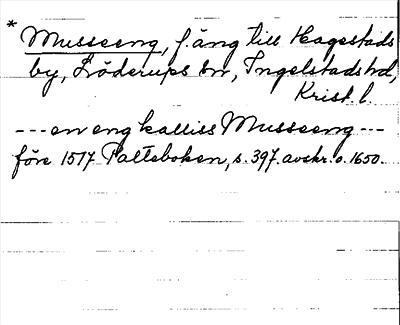 * Musseeng, f. äng till Hagestads
by, Löderups sn, Ingelstads hd,
Krist. l.
--- en eng kalliss Musseeng ---
före 1517 Palteboken, s. 397. avskr. o. 1650.